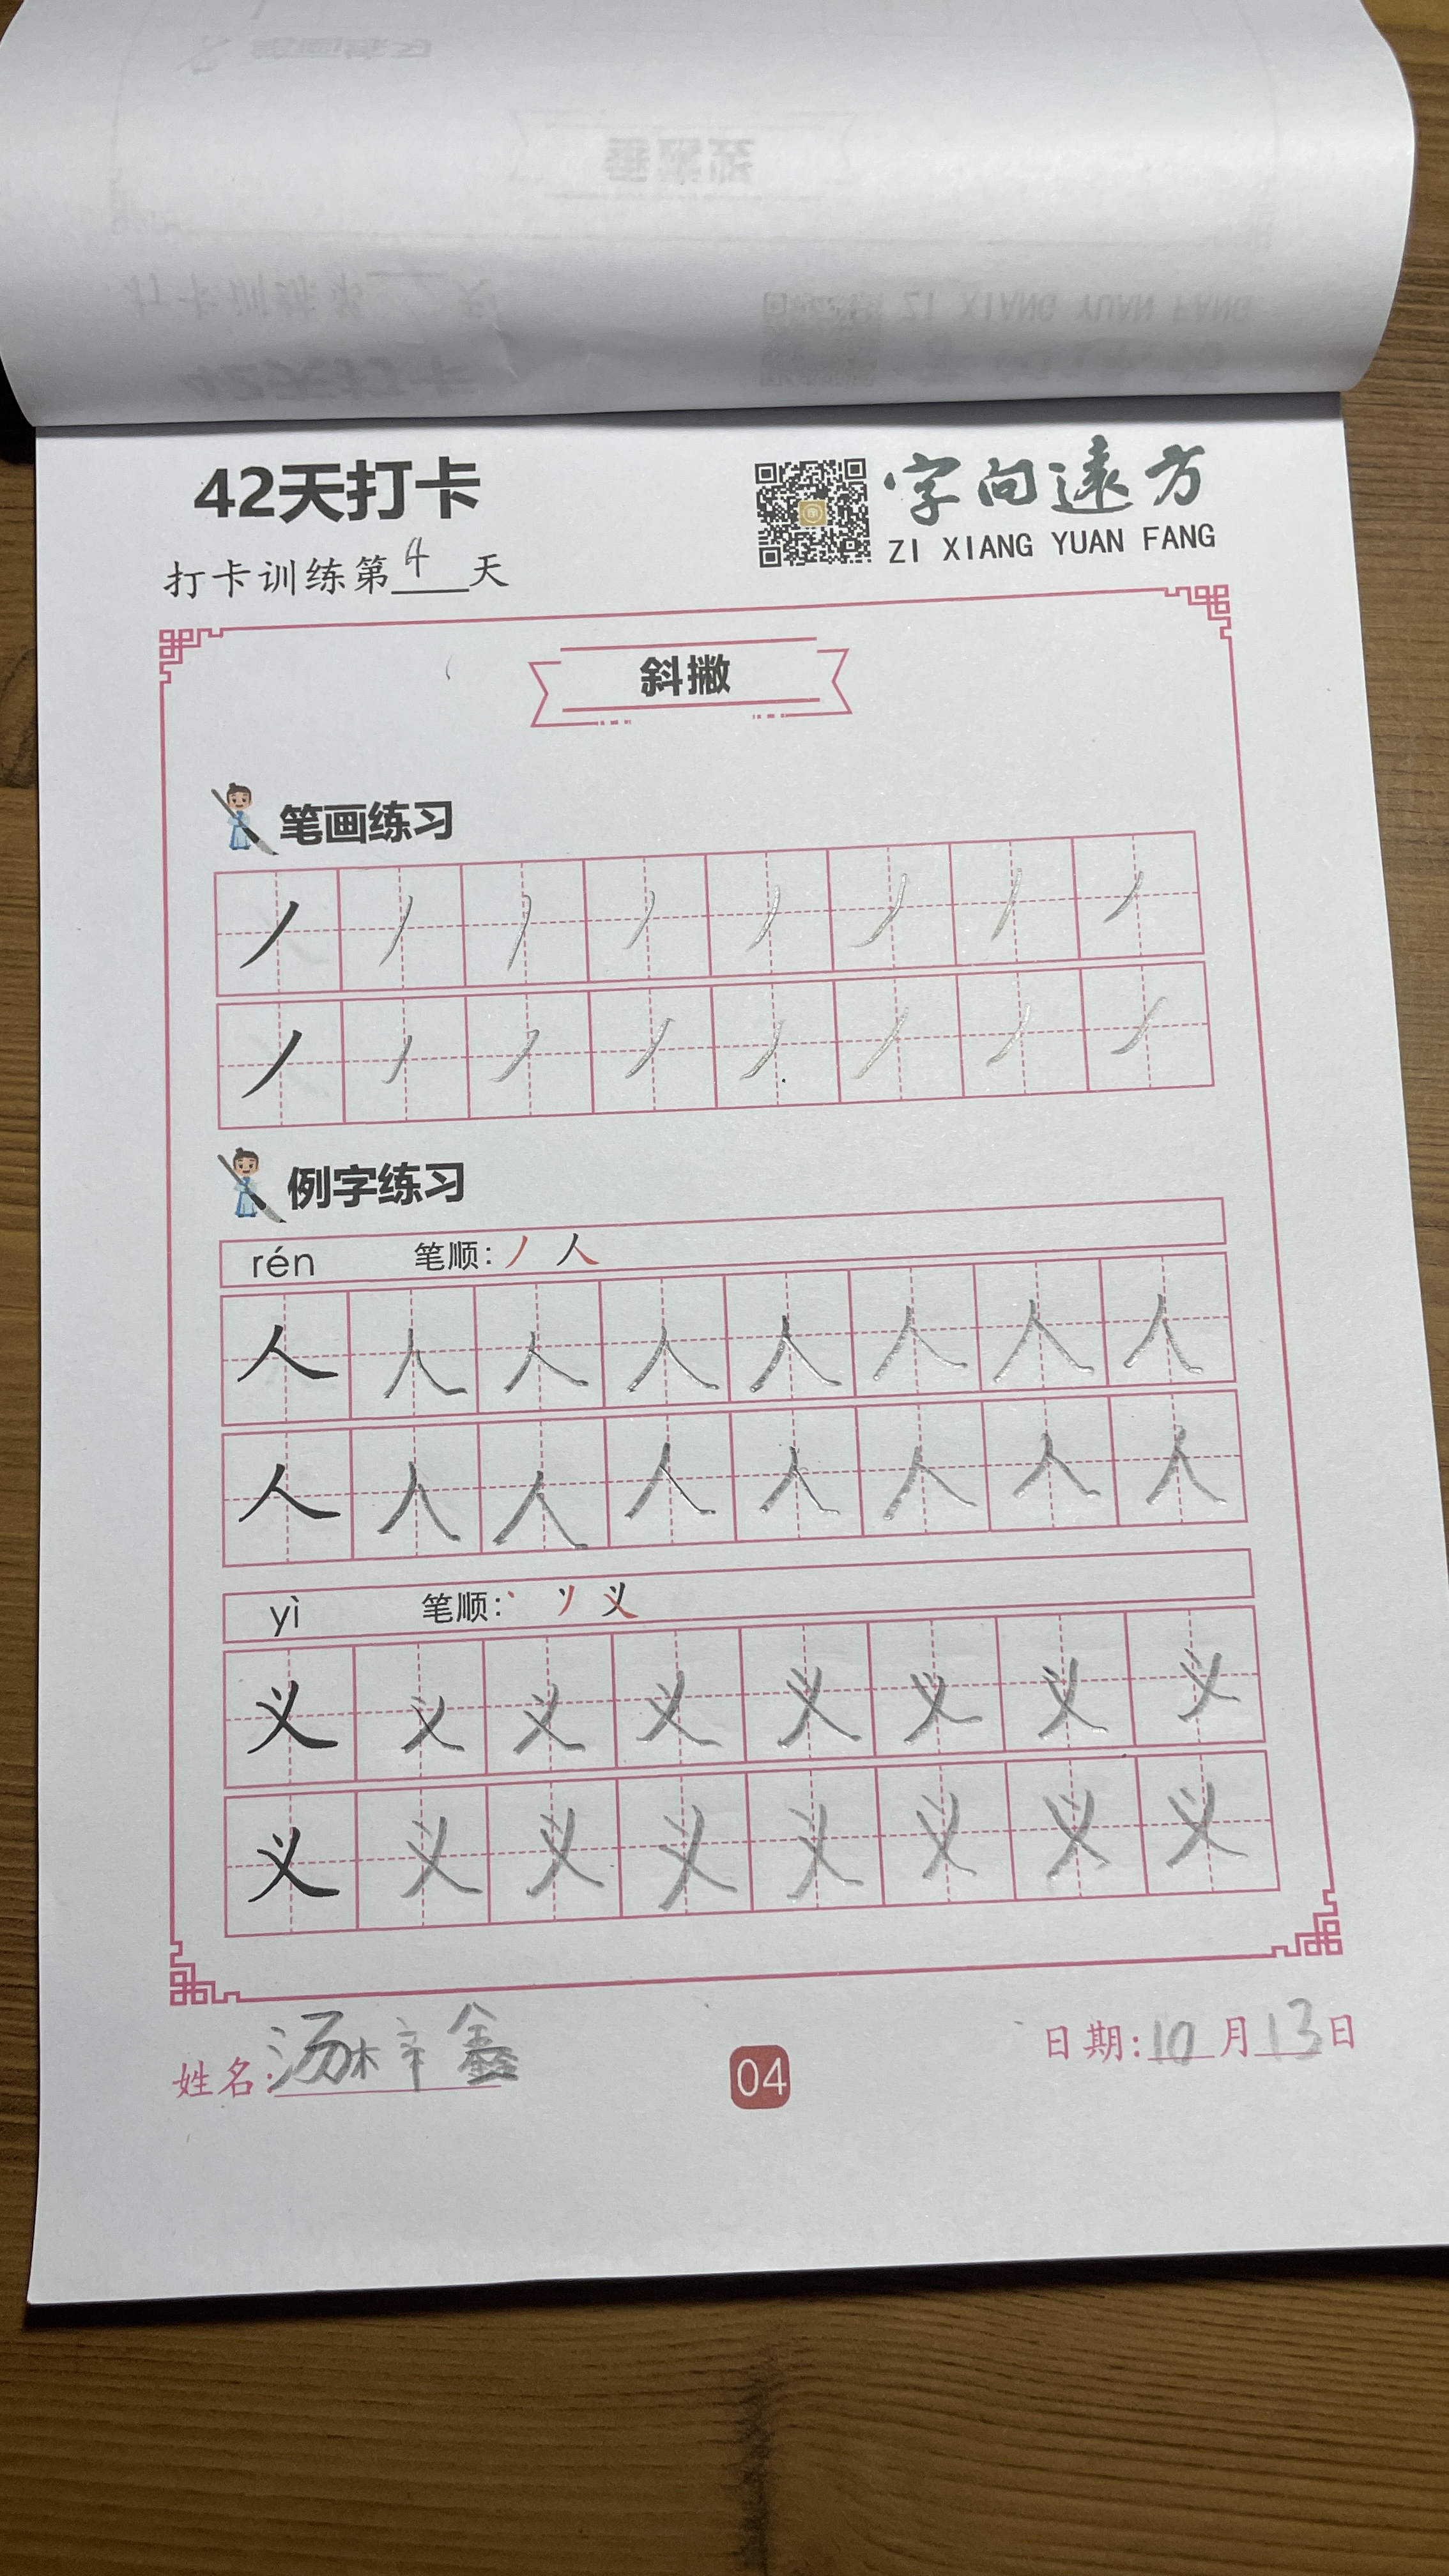 42天打卡
字向远方
ZI XIANG YUAN FANG
打卡训练第4天
斜撇
笔画练习
丿丿丿丿丿丿丿丿
丿丿丿丿丿丿丿丿
例字练习
rén 笔顺:丿 人
人人人人人人人人
人人人人人人人人
yì 笔顺:丶 丷 义
义义义义义义义义
义义义义义义义义
姓名:汤梓鑫
04
日期:10月13日